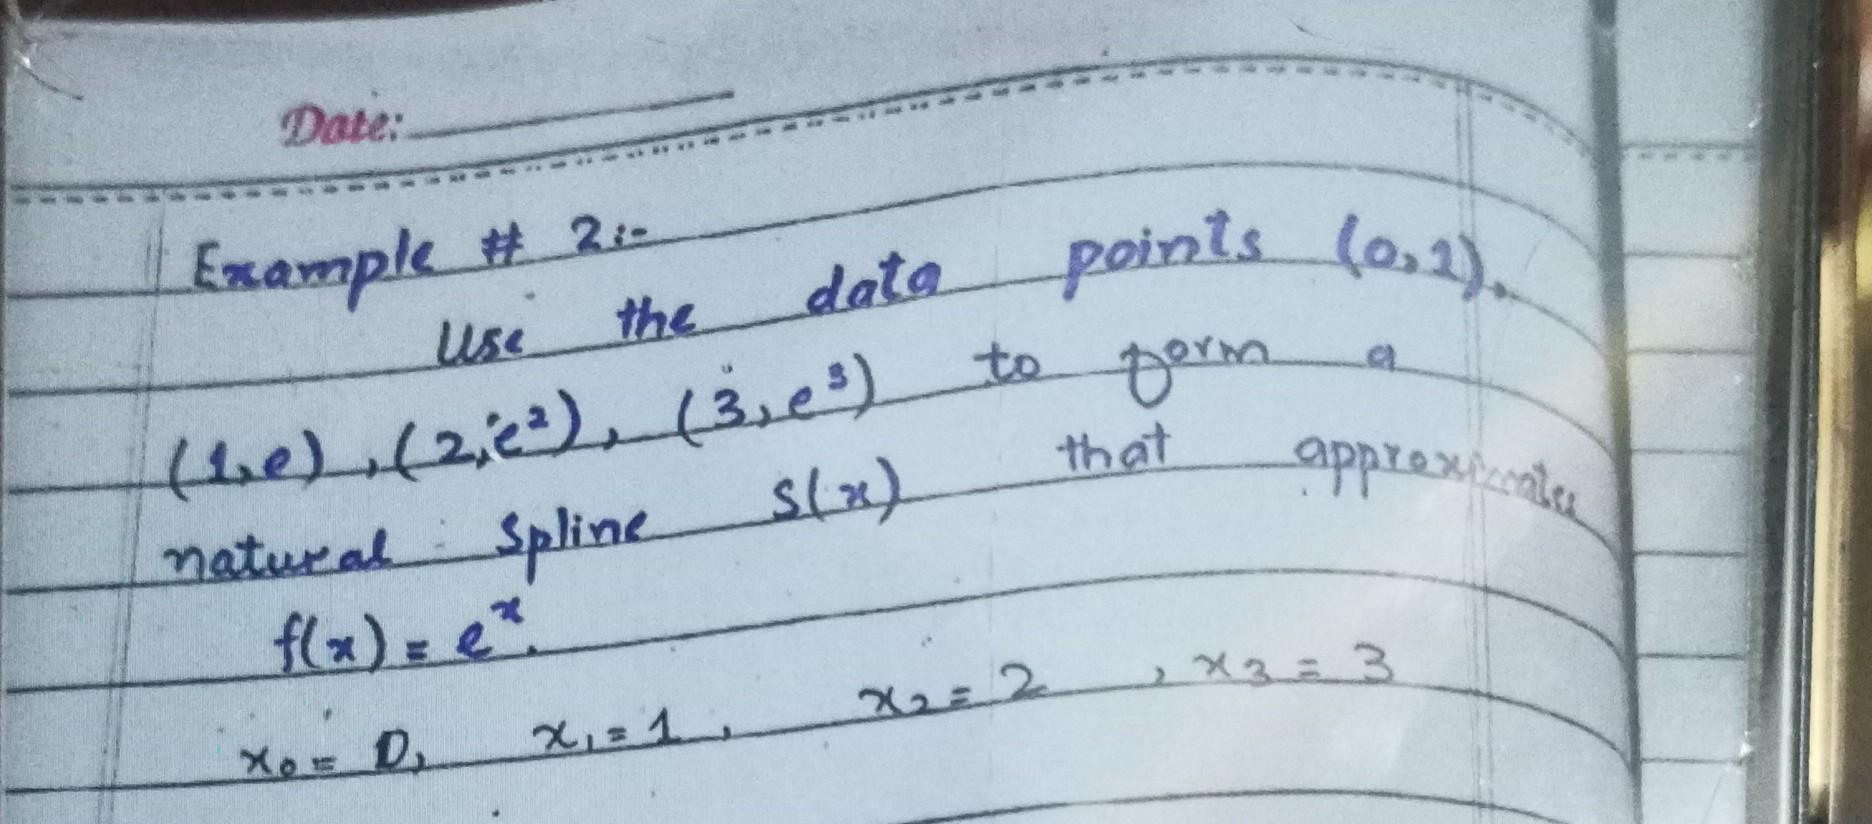 Date:
Example # 2:-
Use the data points (0,1).
(1,e), (2,e²), (3,e³) to form a
natural spline S(x) that approximates
f(x) = eˣ.
x₀ = 0, x₁ = 1, x₂ = 2, x₃ = 3